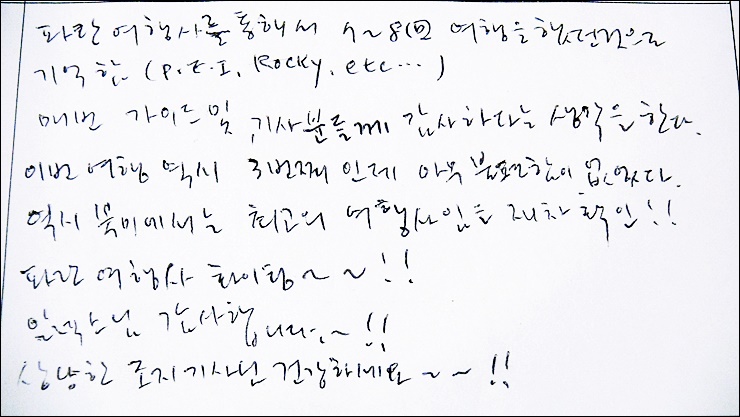 파란 여행사를 통해서 7~8回 여행을 했던것으로
기억함 (P.E.I, Rocky, etc...)
매번 가이드및 기사분들께 감사하다는 생각을 한다.
이번 여행 역시 3번째 인데 아무 불편함이 없었다.
역시 북미에서는 최고의 여행사임을 재차 확인!!
파란 여행사 화이팅~~!!
감사합니다.~!!
상냥한 기사님 건강하세요~~!!